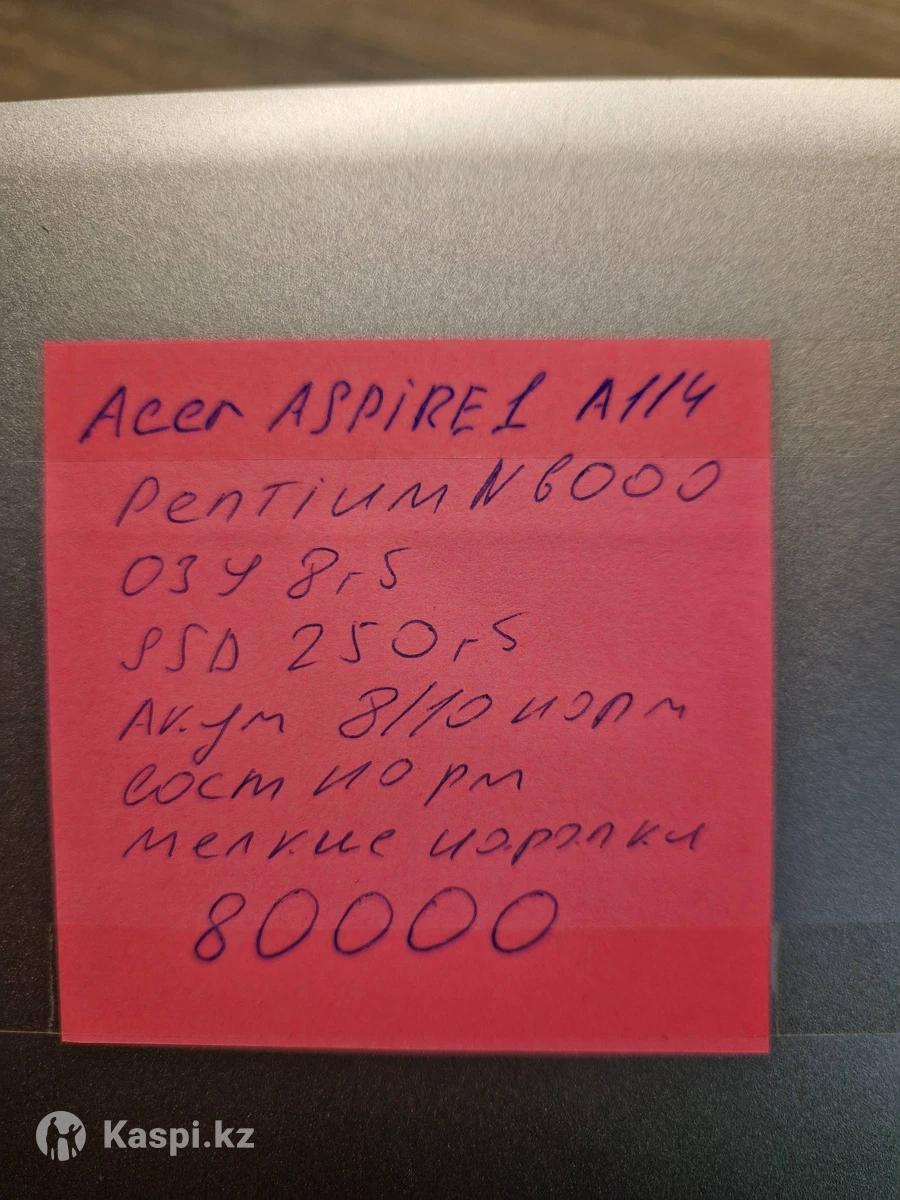 Acer ASPIRE1 A114
Pentium N6000
ОЗУ 8гБ
SSD 250гБ
Ак.ум 8/10 норм
сост норм
мелкие царапки
80000
Kaspi.kz